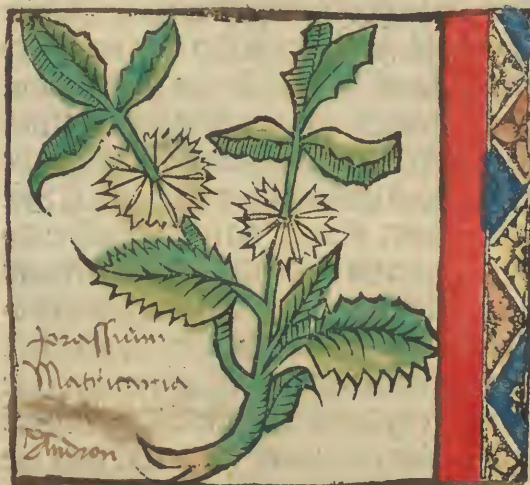 prassium
Matricaria
Andron